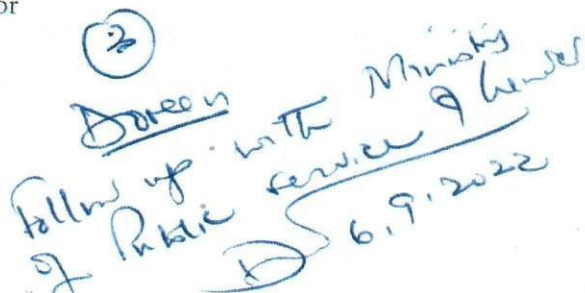 or
3
Doreen
Follow up with Ministry
of Public service & Gender
6.9.2022